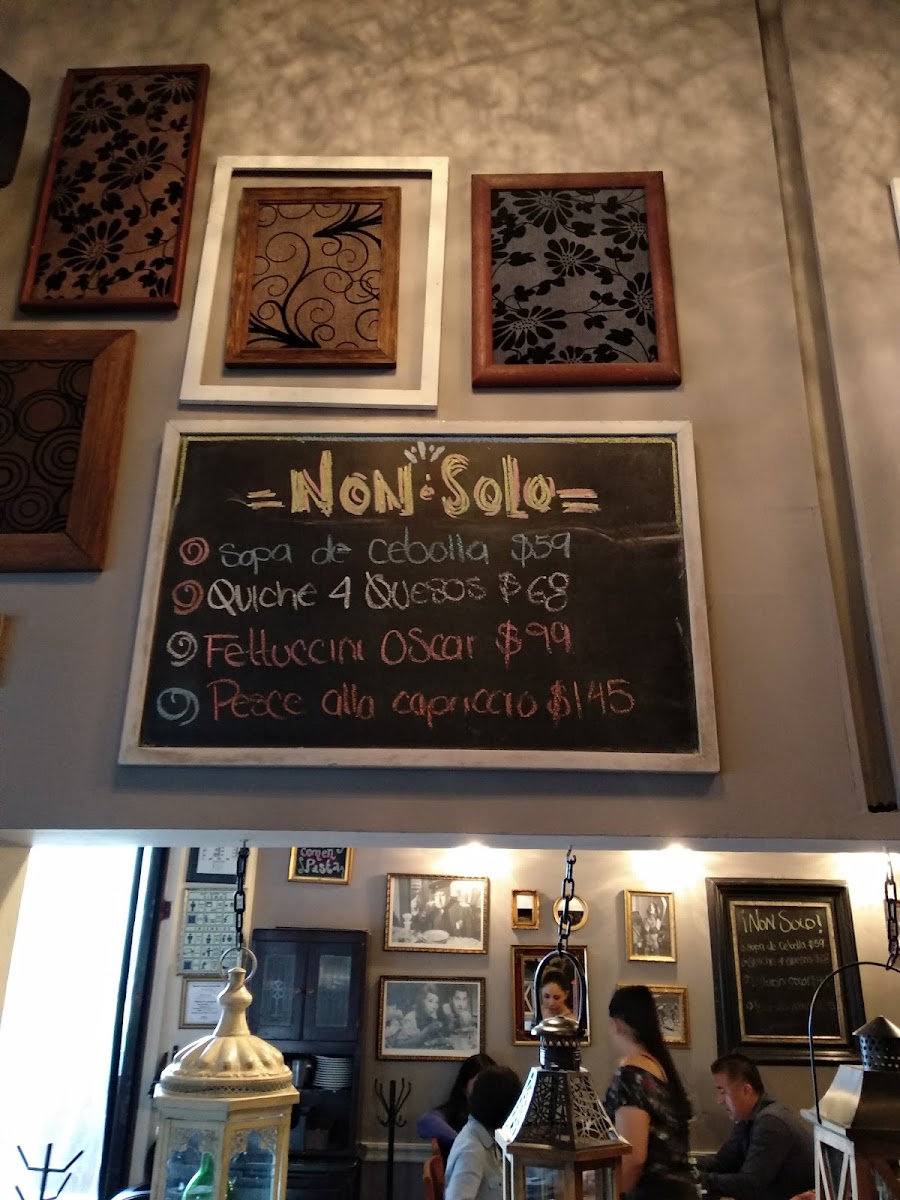 =NON SOLO=
Sopa de cebolla $59
QUICHE 4 QUESOS $68
Fettuccini OSCAR $99
Pesce alla capriccio $145
comen
Pasta
¡NON SOLO!
sopa de cebolla $59